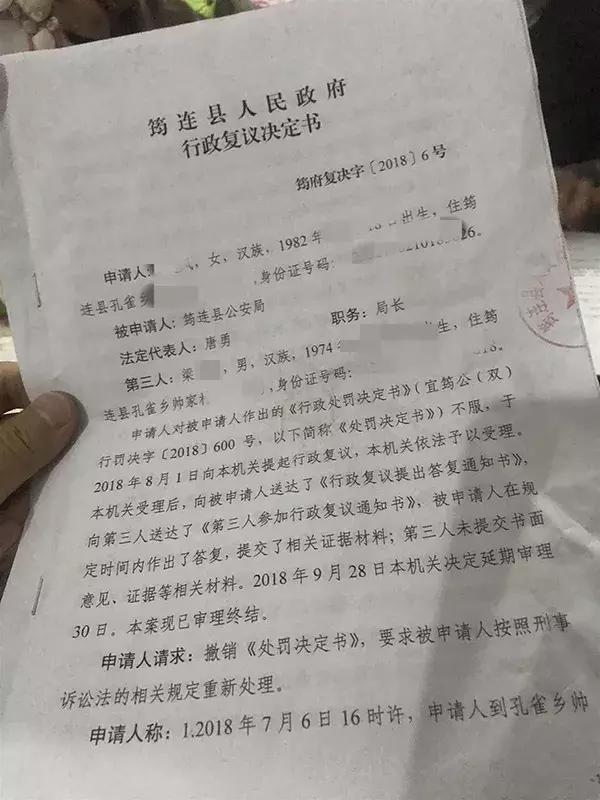 筠连县人民政府
行政复议决定书
筠府复决字〔2018〕6号
申请人 ，女，汉族，1982年 出生，住筠
连县孔雀乡 ,身份证号码: 26。
被申请人：筠连县公安局
法定代表人：唐勇 职务：局长
第三人：梁 ，男，汉族，1974年 出生，住筠
连县孔雀乡帅家村 ,身份证号码:
申请人对被申请人作出的《行政处罚决定书》（宜筠公（双）
行罚决字〔2018〕600号，以下简称《处罚决定书》）不服，于
2018年8月1日向本机关提起行政复议，本机关依法予以受理。
本机关受理后，向被申请人送达了《行政复议提出答复通知书》，
向第三人送达了《第三人参加行政复议通知书》，被申请人在规
定时间内作出了答复，提交了相关证据材料；第三人未提交书面
意见、证据等相关材料。2018年9月28日本机关决定延期审理
30日。本案现已审理终结。
申请人请求：撤销《处罚决定书》，要求被申请人按照刑事
诉讼法的相关规定重新处理。
申请人称：1.2018年7月6日16时许，申请人到孔雀乡帅